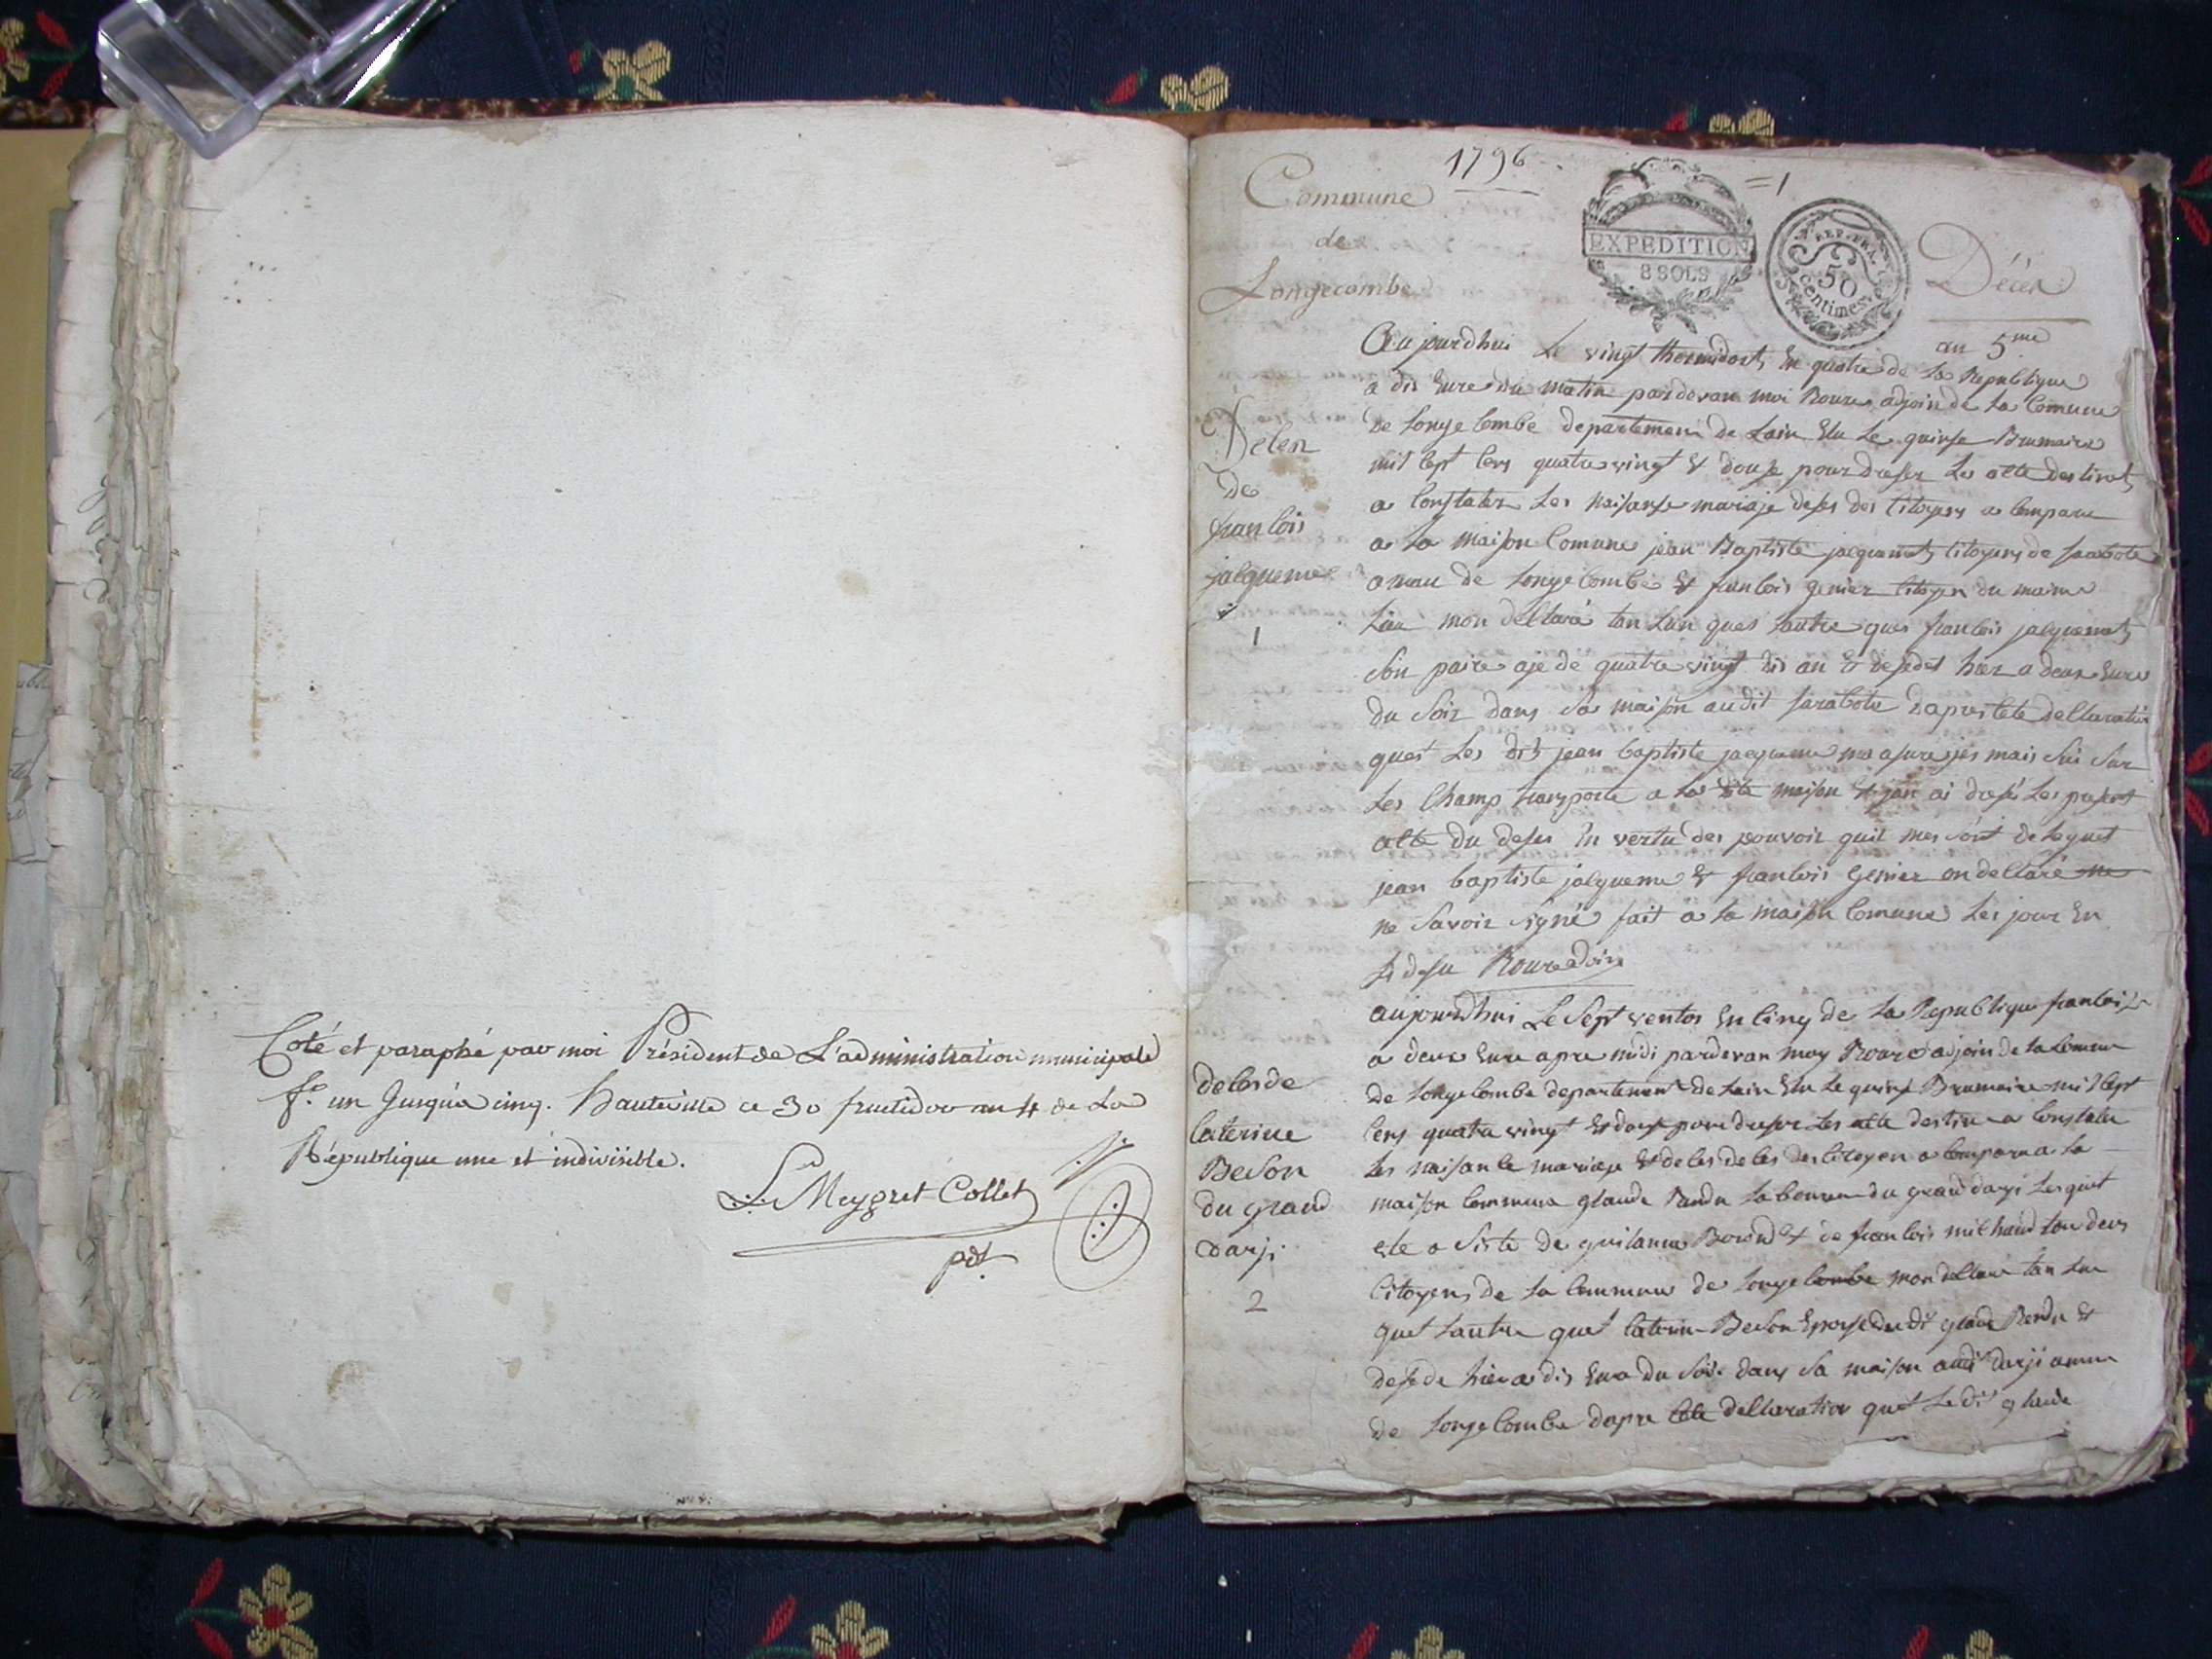 Coté et paraphé par moi Président de L'administration municipale
fo. un Jusqu'a cinq. Hauteville ce 30 fructidor an 4 de La
République une et indivisible.
L Meygret Collet
pdt
1796
=1
Commune
de
Longecombe
EXPEDITION
8 SOLS
REP. FRA.
50
centimes
Décès
an 5me
Deces
De
francois
jacqueme
1
Aujourdhui Le vingt thermidort En quatre de La Republique
a dis Eure du matin pardevan moi Roux adjoin de La Comune
De Longecombe departement de Lain Elu Le quinse Brumaire
mil sept cens quatre vingt & douse pour dreser Les acte destinet
a Constater Les naisanse mariaje deses des Citoyens a comparu
a La maison Comune jean Baptiste jacquemet Citoyens de
amau de Longecombe & francois genier Citoyen du maime
Lieu mon declaré tan Lun ques Lautre ques francois jacquemet
Son paire aje de quatre vingt dis an & desedet hier a deux Eure
du Soir dans Sa maison audit sarabote dapres cete declaration
quet Les dit jean baptiste jacqueme ma asure jes mais Sui Sur
Les Champ transporte a La dite maison & jan ai dresé Les present
acte du deses En vertu des pouvoir quil mes sont deleguet
jean baptiste jacqueme & francois genier on declaré ne
ne Savoir signé fait a La maison Comune Les jour En
si desu Roux adoin
aujourdhui Le Sept ventos En cinq de La Republique francoise
a deux Eure apre midi pardevan moy Roux adjoin de La Comun
de Longecombe departement de Lain Elu Le quinse Brumaire mil sept
cens quatre vingt & douse pour dreser Les acte destine a Constater
Les naisance mariaje & de des Citoyen a comparu a La
maison Commune glaude Rendu Laboureur du grand darji Lesquet
ete a Siste de guilaume & de francois milhaud tou deus
Citoyens de La Commune de Longecombe mon declare tan Lun
quet Lautre quet Caterine Beson Epouse dudit glaude Rendu &
desede hier a dis Eure du Soir dans Sa maison audit darji amau
de Longecombe dapre cete declaration quet Ledit glaude
deces de
Caterine
Beson
du grand
darji
2